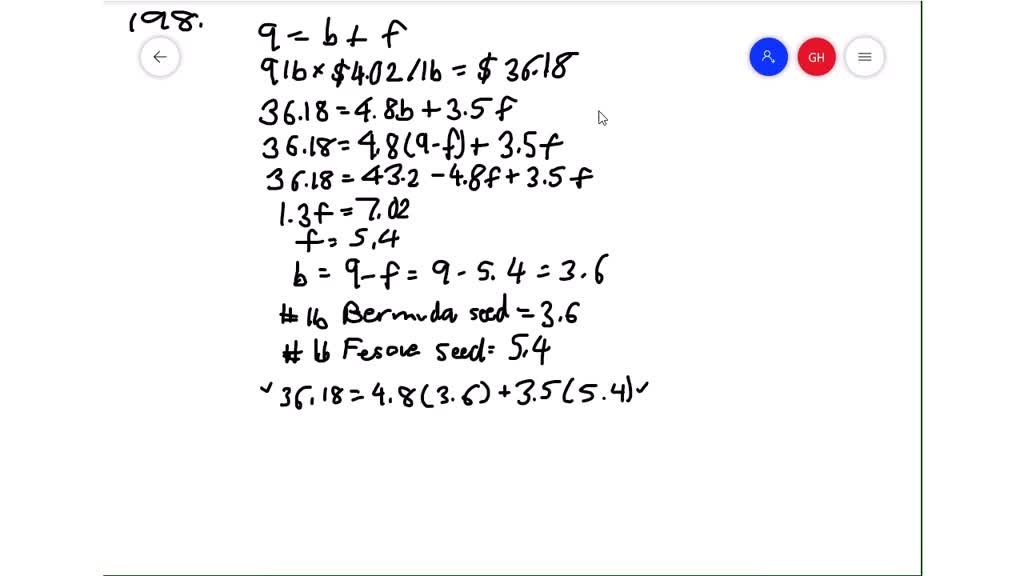 198.
9 = b + f
9 lb × $4.02 / lb = $36.18
36.18 = 4.8b + 3.5f
36.18 = 4.8(9-f) + 3.5f
36.18 = 43.2 - 4.8f + 3.5f
1.3f = 7.02
f = 5.4
b = 9 - f = 9 - 5.4 = 3.6
# lb Bermuda seed = 3.6
# lb Fescue seed = 5.4
✓ 36.18 = 4.8(3.6) + 3.5(5.4) ✓
GH